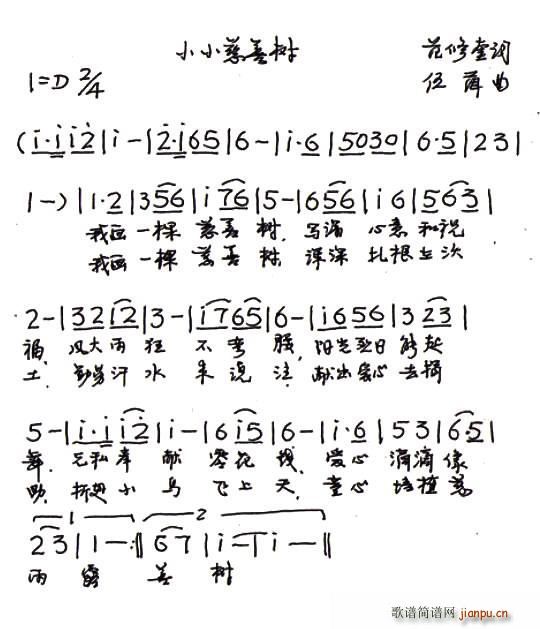 小小慈善树
范修奎词
1=D 2/4
伍 薛 曲
(i·i i2|i-|2·i65|6-|i·6|5030|6·5|23|
1-)|1·2|356|i 76|5-|656|i6|563|
我画一棵 慈善 树, 写满 心意 和祝
我画一棵 慈善 树, 深深 扎根 土
2-|32i2|3-|i765|6-|i656|3 23|
福, 风大雨狂 不弯 腰, 阳光 日 起
土, 汗水 来 浇 注, 献出爱心 去捐
5-|i·i i2|i-|6 i5|6-|i·6|53|65|
舞, 无私奉 献 零花 钱, 爱心 滴滴 像
助, 折翅小 鸟 飞上 天, 童心 培植 慈
1 2
23|1-:‖67|i-|i-‖
雨 露 善 树
歌谱简谱网
jianpu.cn